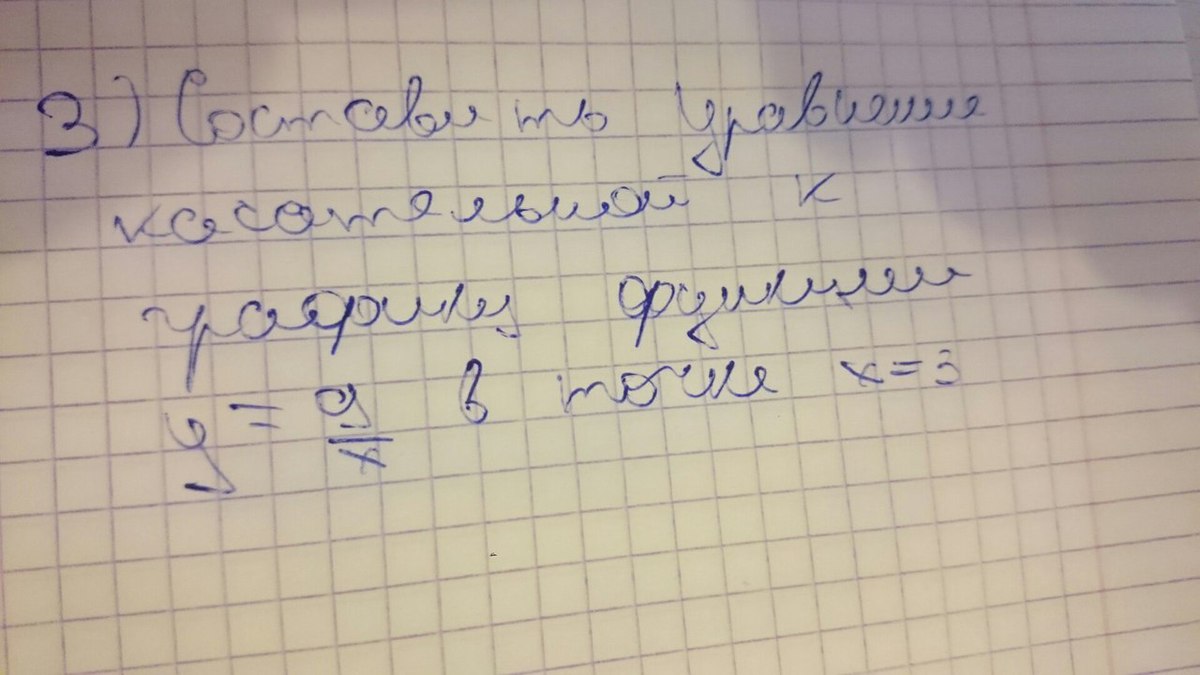 3) Составить уравнение
касательной к
графику функции
y = 9/x в точке x=3